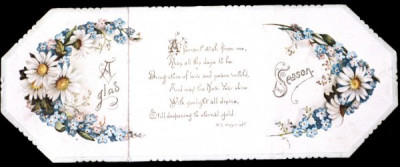 A
glad
A fervent wish from me,
May all the days to be
Bring stores of love and peace untold,
And may the
With sunlight all divine,
Still deepening to eternal gold.
Season